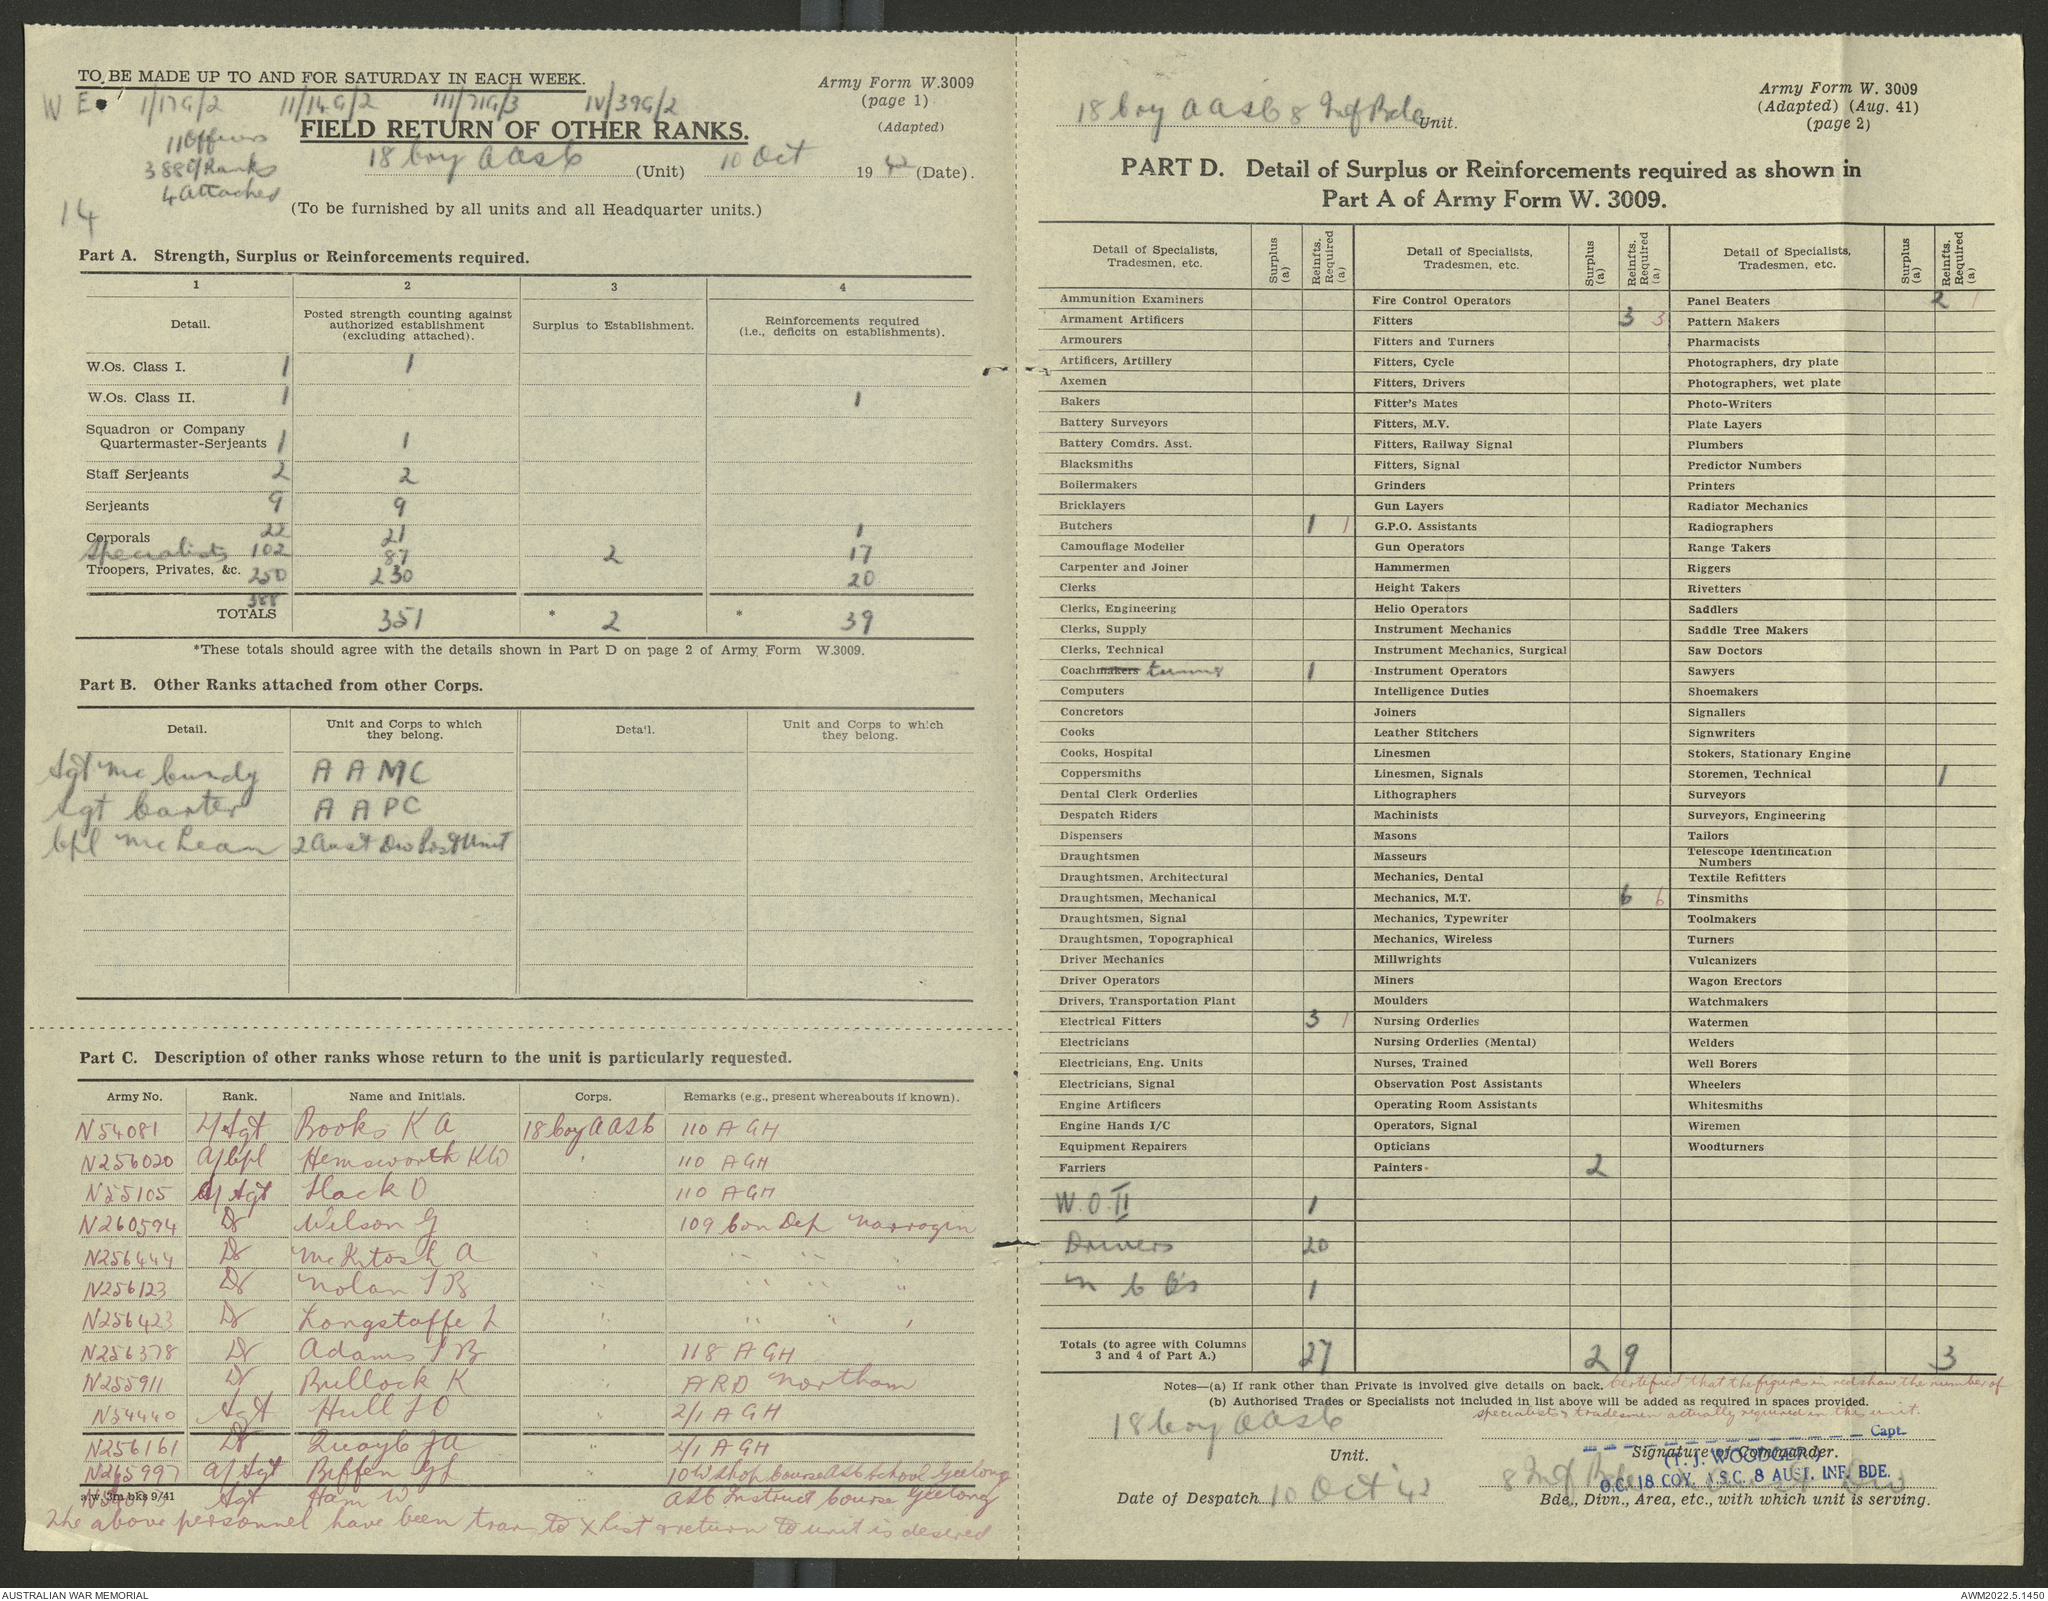 TO BE MADE UP TO AND FOR SATURDAY IN EACH WEEK.
Army Form W.3009
(page 1)
(Adapted)
W E 1/17G/2 11/14G/2 111/71G/3 IV/39G/2
11 Officers
388 O/Ranks
4 Attached
14
FIELD RETURN OF OTHER RANKS.
18 Coy AASC (Unit) 10 Oct 1942 (Date).
(To be furnished by all units and all Headquarter units.)
Part A. Strength, Surplus or Reinforcements required.
1 2 3 4
Detail. Posted strength counting against authorized establishment (excluding attached). Surplus to Establishment. Reinforcements required (i.e., deficits on establishments).
W.Os. Class I. 1 1
W.Os. Class II. 1 1
Squadron or Company
Quartermaster-Serjeants 1 1
Staff Serjeants 2 2
Serjeants 9 9
Corporals 22 21 1
Specialists 102 87 2 17
Troopers, Privates, &c. 250 230 20
388
TOTALS 351 * 2 * 39
*These totals should agree with the details shown in Part D on page 2 of Army Form W.3009.
Part B. Other Ranks attached from other Corps.
Detail. Unit and Corps to which they belong. Detail. Unit and Corps to which they belong.
Sgt McCurdy AAMC
Sgt Carter AAPC
Cpl McLean 2 Aust Div Post Unit
Part C. Description of other ranks whose return to the unit is particularly requested.
Army No. Rank. Name and Initials. Corps. Remarks (e.g., present whereabouts if known).
N54081 L/Sgt Books K A 18 Coy AASC 110 AGH
N256020 A/Cpl Hemsworth KW " 110 AGH
N55105 A/Sgt Slack D " 110 AGH
N260594 Dr Wilson G " 109 Con Dep Narrogin
N256444 Dr McKitosh A " " " "
N256123 Dr Nolan J B " " " "
N256423 Dr Longstaffe L " " " "
N256378 Dr Adams J B " 118 AGH
N255911 Dr Bullock K " ARD Northam
N54440 Sgt Hull J O " 2/1 AGH
N256161 Dr Quayle JA " 2/1 AGH
N265997 A/Sgt Biffen GL " 10 W shop Course ASC School Geelong
a/w. 3m bks 9/41
Sgt Ham W ASC Instruct Course Geelong
The above personnel have been trans to X list & return to unit is desired
18 Coy AASC 8 Inf Bde Unit.
Army Form W. 3009
(Adapted) (Aug. 41)
(page 2)
PART D. Detail of Surplus or Reinforcements required as shown in
Part A of Army Form W. 3009.
Detail of Specialists, Tradesmen, etc. Surplus (a) Reinfts. Required (a) Detail of Specialists, Tradesmen, etc. Surplus (a) Reinfts. Required (a) Detail of Specialists, Tradesmen, etc. Surplus (a) Reinfts. Required (a)
Ammunition Examiners Fire Control Operators Panel Beaters 2 1
Armament Artificers Fitters 3 3 Pattern Makers
Armourers Fitters and Turners Pharmacists
Artificers, Artillery Fitters, Cycle Photographers, dry plate
Axemen Fitters, Drivers Photographers, wet plate
Bakers Fitter's Mates Photo-Writers
Battery Surveyors Fitters, M.V. Plate Layers
Battery Comdrs. Asst. Fitters, Railway Signal Plumbers
Blacksmiths Fitters, Signal Predictor Numbers
Boilermakers Grinders Printers
Bricklayers Gun Layers Radiator Mechanics
Butchers 1 1 G.P.O. Assistants Radiographers
Camouflage Modeller Gun Operators Range Takers
Carpenter and Joiner Hammermen Riggers
Clerks Height Takers Rivetters
Clerks, Engineering Helio Operators Saddlers
Clerks, Supply Instrument Mechanics Saddle Tree Makers
Clerks, Technical Instrument Mechanics, Surgical Saw Doctors
Coachmakers trimmers 1 Instrument Operators Sawyers
Computers Intelligence Duties Shoemakers
Concretors Joiners Signallers
Cooks Leather Stitchers Signwriters
Cooks, Hospital Linesmen Stokers, Stationary Engine
Coppersmiths Linesmen, Signals Storemen, Technical 1
Dental Clerk Orderlies Lithographers Surveyors
Despatch Riders Machinists Surveyors, Engineering
Dispensers Masons Tailors
Draughtsmen Masseurs Telescope Identification Numbers
Draughtsmen, Architectural Mechanics, Dental Textile Refitters
Draughtsmen, Mechanical Mechanics, M.T. 6 6 Tinsmiths
Draughtsmen, Signal Mechanics, Typewriter Toolmakers
Draughtsmen, Topographical Mechanics, Wireless Turners
Driver Mechanics Millwrights Vulcanizers
Driver Operators Miners Wagon Erectors
Drivers, Transportation Plant Moulders Watchmakers
Electrical Fitters 3 1 Nursing Orderlies Watermen
Electricians Nursing Orderlies (Mental) Welders
Electricians, Eng. Units Nurses, Trained Well Borers
Electricians, Signal Observation Post Assistants Wheelers
Engine Artificers Operating Room Assistants Whitesmiths
Engine Hands I/C Operators, Signal Wiremen
Equipment Repairers Opticians Woodturners
Farriers Painters 2
W.O. II 1
Drivers 20
N C O's 1
Totals (to agree with Columns 3 and 4 of Part A.) 27 2 9 3
Notes—(a) If rank other than Private is involved give details on back. Certified that the figures in red show the number of
(b) Authorised Trades or Specialists not included in list above will be added as required in spaces provided.
specialists & tradesmen actually required in the unit.
18 Coy AASC
Unit.
Capt.
Signature of Commander.
(T. J. WOODGER)
O.C. 18 COY. A.S.C. 8 AUST. INF. BDE.
Date of Despatch 10 Oct 42
8 Inf Bde
Bde., Divn., Area, etc., with which unit is serving.
AUSTRALIAN WAR MEMORIAL
AWM2022.5.1450